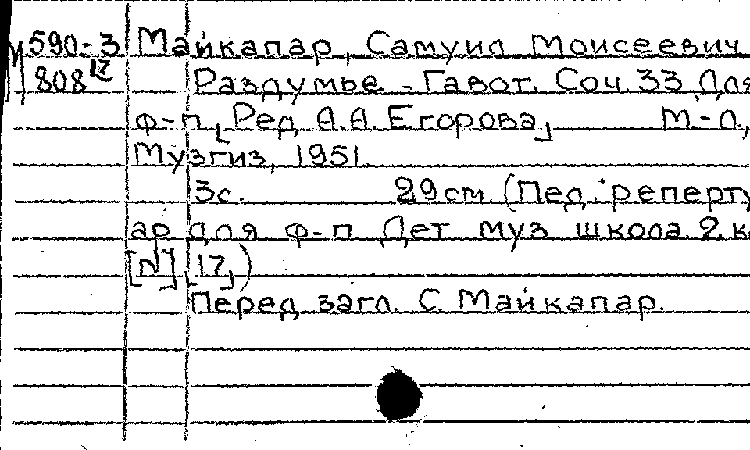 590-3 Майкапар, Самуил Моисеевич
808 12 Раздумье - Гавот. Соч 33 Для
ф-п [Ред А.А. Егорова] М.-Л,
Музгиз, 1951.
3с. 29см (Пед. реперту
ар для ф-п Дет муз школа 2 к
[N] [17])
Перед загл. С. Майкапар.